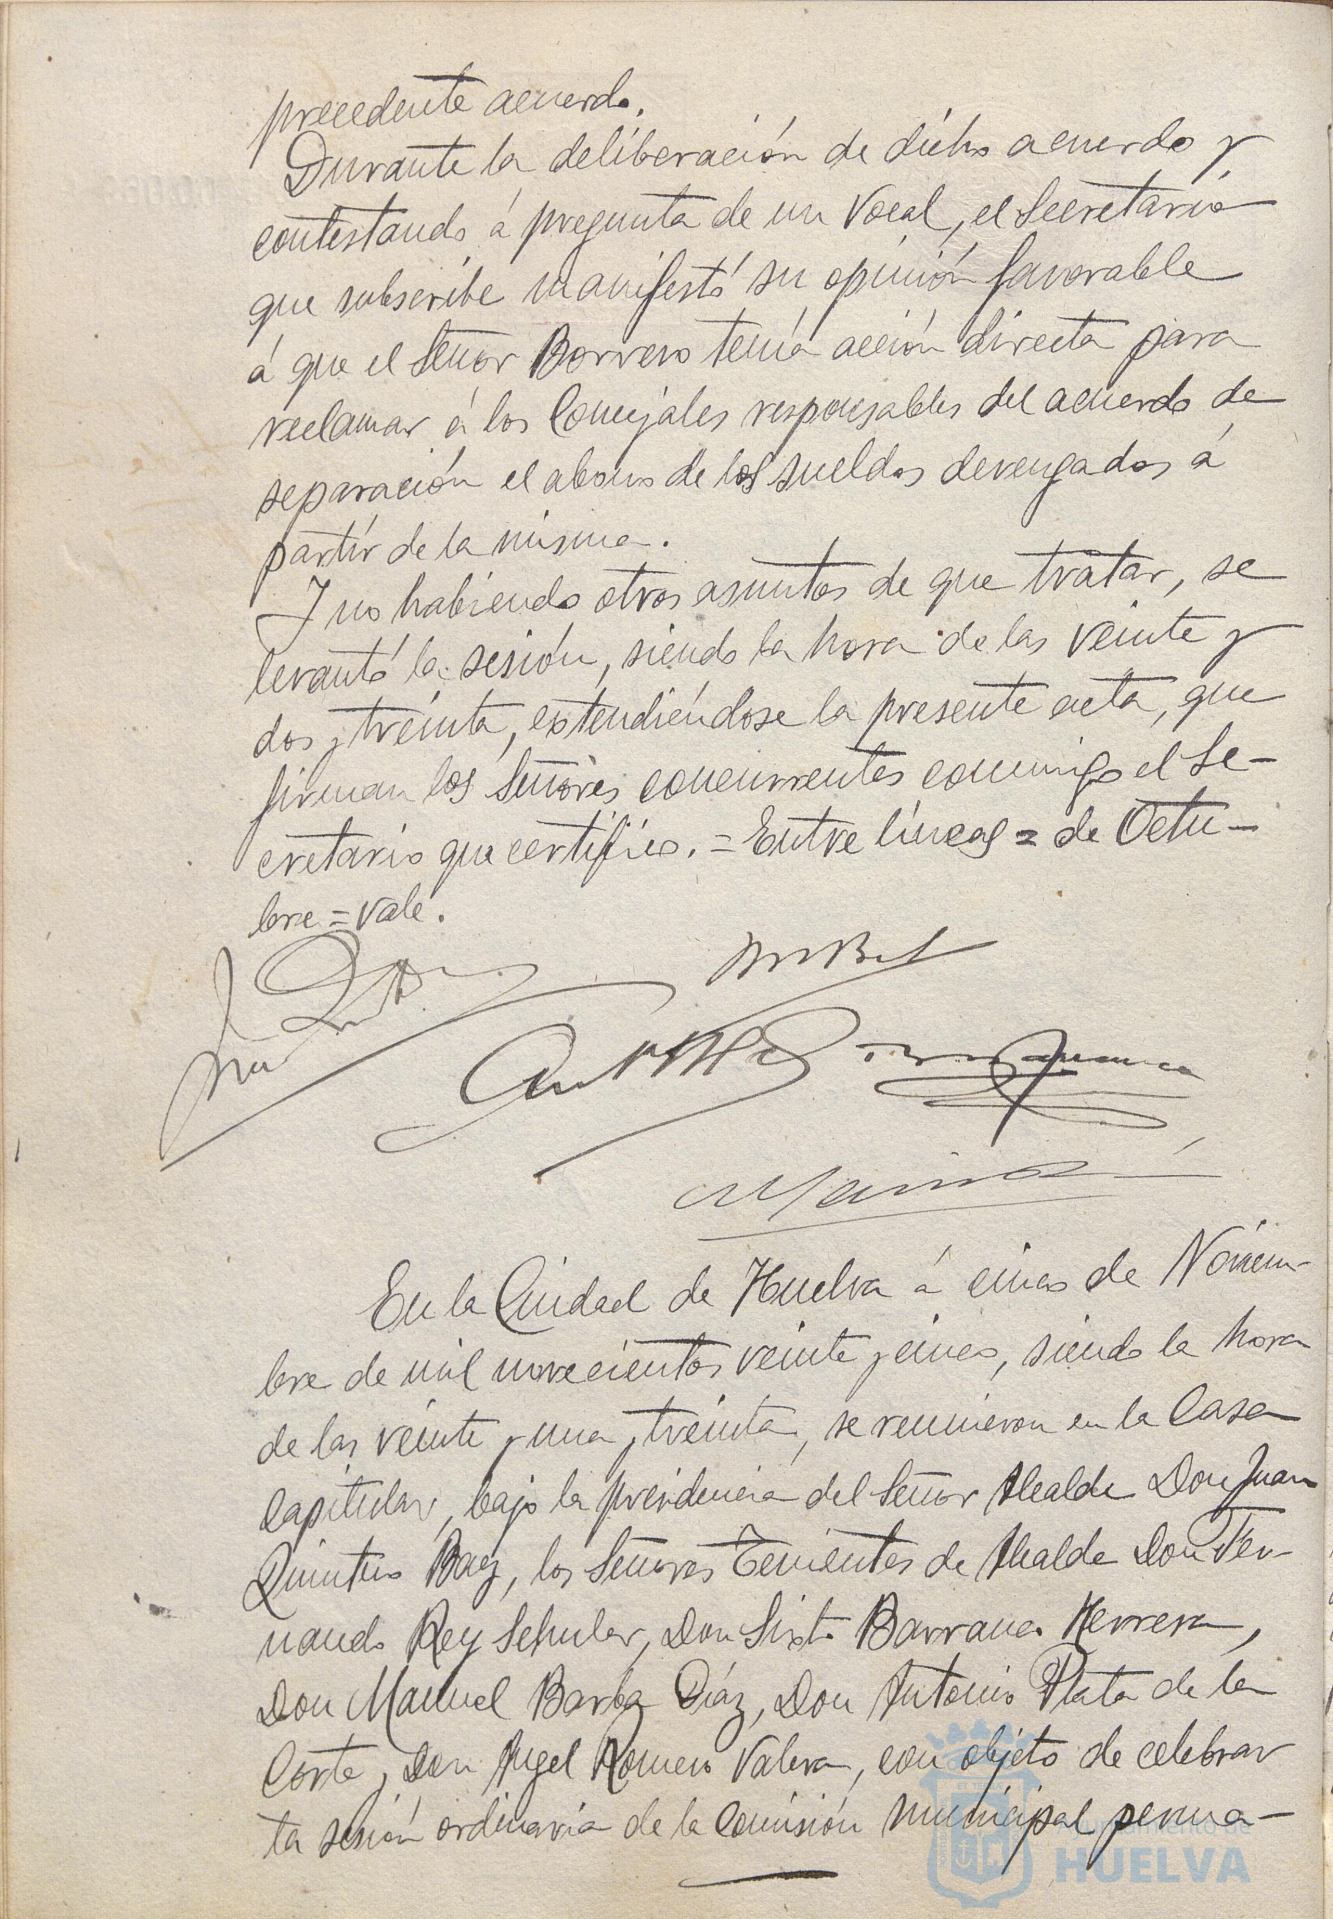 precedente acuerdo.
Durante la deliberación de dicho acuerdo y
contestando á pregunta de un Vocal, el Secretario
que subscribe manifestó su opinión favorable
á que el Señor Borrero tenía acción directa para
reclamar á los Concejales responsables del acuerdo de
separación el abono de los sueldos devengados á
partir de la misma.
Y no habiendo otros asuntos de que tratar, se
levantó la sesión, siendo la hora de las veinte y
dos y treinta, extendiéndose la presente acta, que
firman los Señores concurrentes conmigo el Se-
cretario que certifico. = Entre líneas = de Octu-
bre = Vale.
En la Ciudad de Huelva á cinco de Noviem-
bre de mil novecientos veinte y cinco, siendo la hora
de las veinte y una y treinta, se reunieron en la Casa
Capitular, bajo la presidencia del Señor Alcalde Don Juan
Quintero Baez, los Señores Tenientes de Alcalde Don Fer-
nando Rey Schuler, Don Sixto Barranco Herrera,
Don Manuel Barba Díaz, Don Antonio Plata de la
Corte, Don Angel Romero Valera, con objeto de celebrar
la sesión ordinaria de la Comisión municipal perma-
Ayuntamiento de
HUELVA